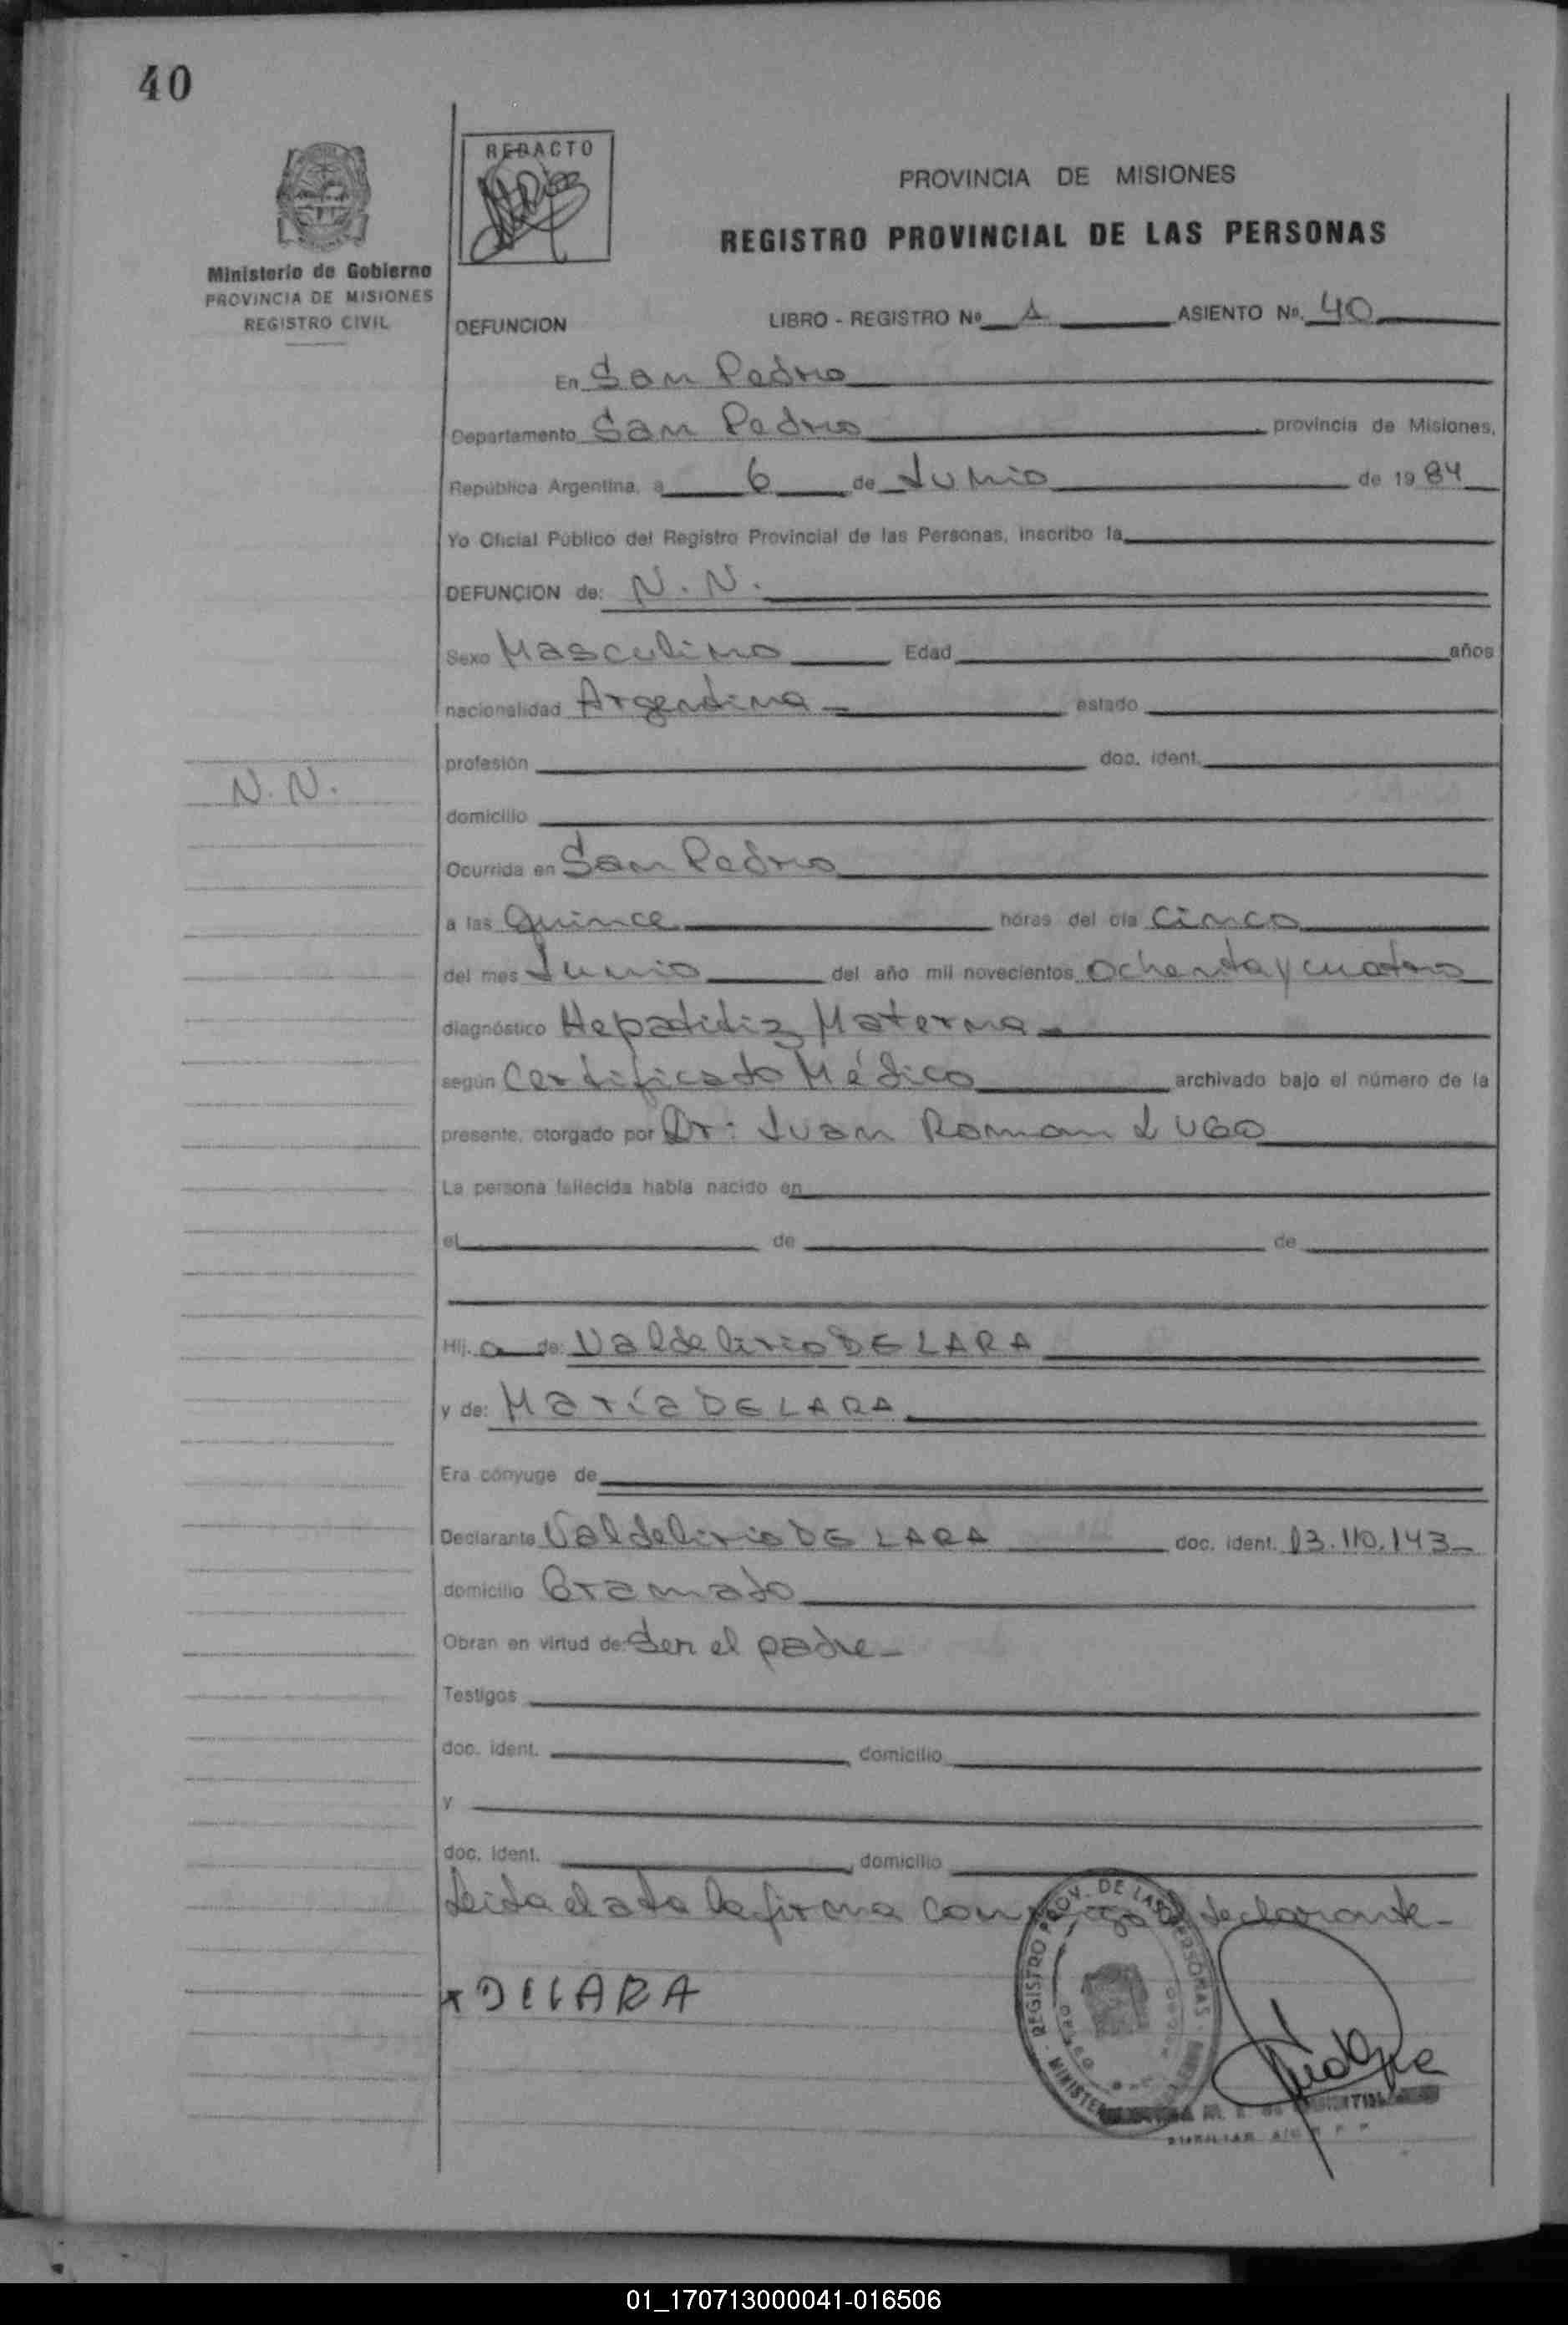 40
REDACTO
Ministerio de Gobierno
PROVINCIA DE MISIONES
REGISTRO CIVIL
PROVINCIA DE MISIONES
REGISTRO PROVINCIAL DE LAS PERSONAS
DEFUNCION LIBRO - REGISTRO Nº A ASIENTO Nº. 40
En San Pedro
Departamento San Pedro provincia de Misiones,
República Argentina, a 6 de Junio de 1984
Yo Oficial Público del Registro Provincial de las Personas, inscribo la
DEFUNCION de: N. N.
Sexo Masculino Edad años
nacionalidad Argentina estado
profesión doc. ident.
N. N.
domicilio
Ocurrida en San Pedro
a las quince horas del día cinco
del mes Junio del año mil novecientos ochenta y cuatro
diagnóstico Hepatitiz Materna
según Certificado Médico archivado bajo el número de la
presente, otorgado por Dr: Juan Roman LUGO
La persona fallecida había nacido en
el de de
Hij. o de: Valdelirio DE LARA
y de: María DE LARA
Era cónyuge de
Declarante Valdelirio DE LARA doc. ident. 13.110.143
domicilio Gramado
Obran en virtud de: Ser el padre
Testigos
doc. ident. domicilio
y
doc. ident. domicilio
Leida el acta la firma conmigo el declarante
DELARA
REGISTRO PROV. DE LAS PERSONAS
01_170713000041-016506